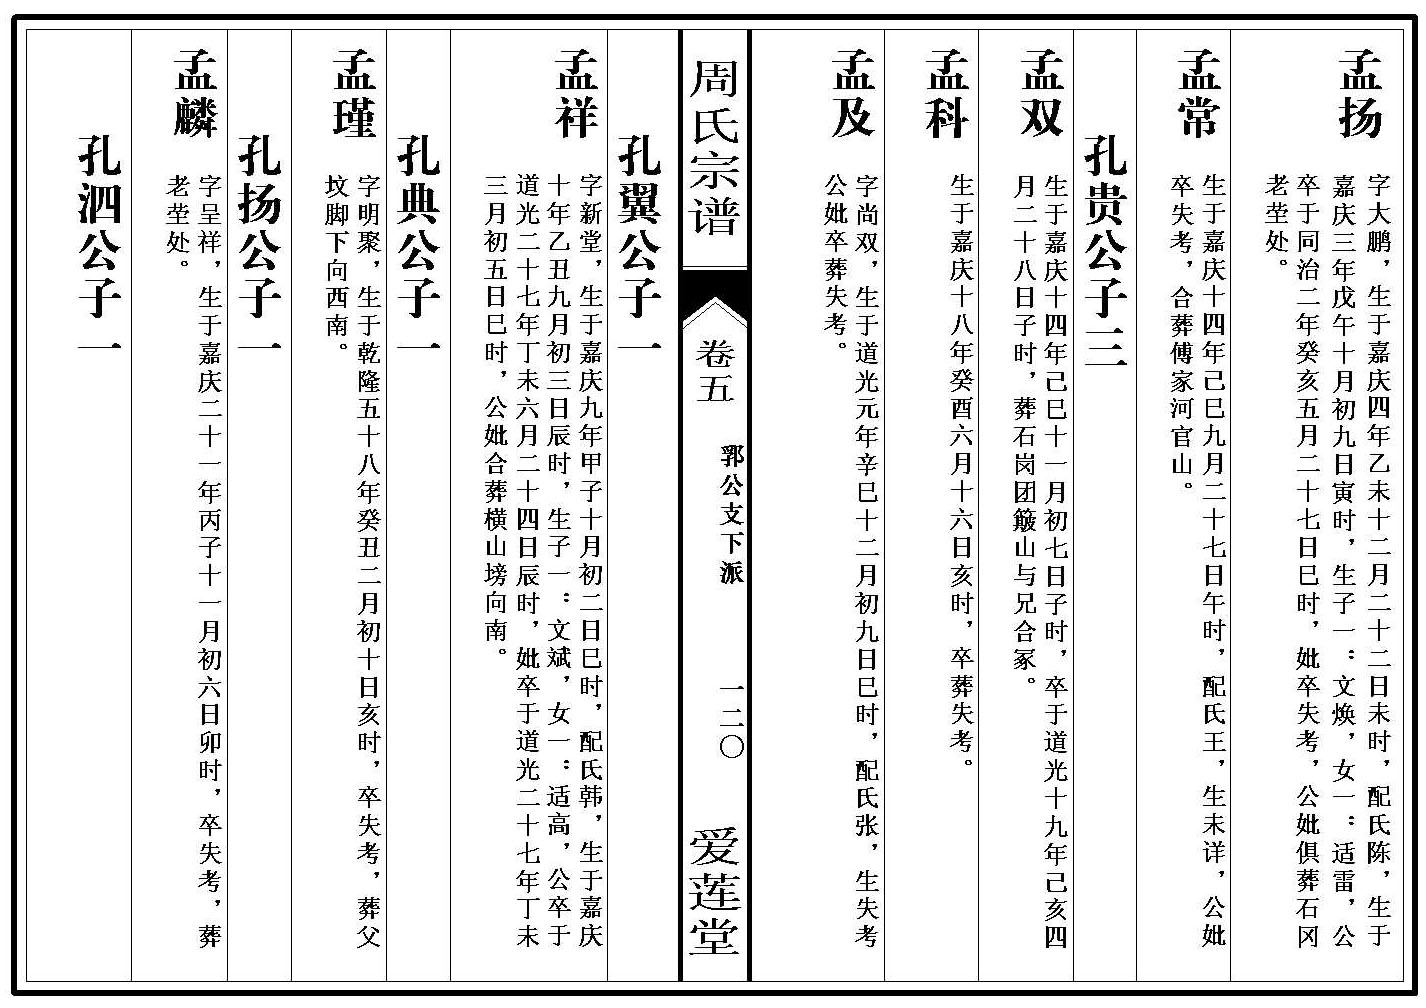 孟扬
字大鹏，生于嘉庆四年乙未十二月二十二日未时，配氏陈，生于
嘉庆三年戊午十月初九日寅时，生子一：文焕，女一：适雷，公
卒于同治二年癸亥五月二十七日巳时，妣卒失考，公妣俱葬石冈
老茔处。
孟常
生于嘉庆十四年己巳九月二十七日午时，配氏王，生未详，公妣
卒失考，合葬傅家河官山。
孔贵公子三
孟双
生于嘉庆十四年己巳十一月初七日子时，卒于道光十九年己亥四
月二十八日子时，葬石岗团簸山与兄合冢。
孟科
生于嘉庆十八年癸酉六月十六日亥时，卒葬失考。
孟及
字尚双，生于道光元年辛巳十二月初九日巳时，配氏张，生失考
公妣卒葬失考。
周氏宗谱
卷五
郛公支下派
一二〇
爱莲堂
孔翼公子一
孟祥
字新堂，生于嘉庆九年甲子十月初二日巳时，配氏韩，生于嘉庆
十年乙丑九月初三日辰时，生子一：文斌，女一：适高，公卒于
道光二十七年丁未六月二十四日辰时，妣卒于道光二十七年丁未
三月初五日巳时，公妣合葬横山塝向南。
孔典公子一
孟瑾
字明聚，生于乾隆五十八年癸丑二月初十日亥时，卒失考，葬父
坟脚下向西南。
孔扬公子一
孟麟
字呈祥，生于嘉庆二十一年丙子十一月初六日卯时，卒失考，葬
老茔处。
孔泗公子一